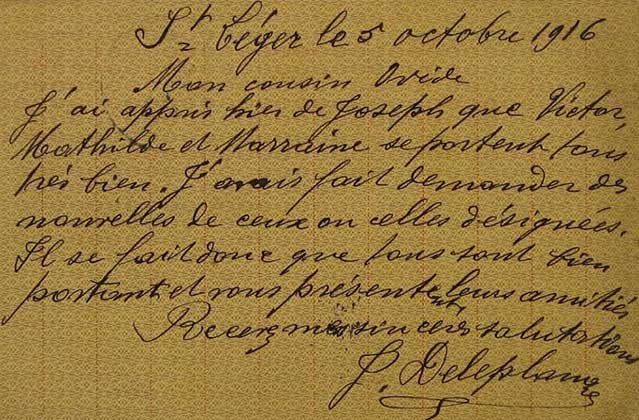 St Léger le 5 octobre 1916
Mon cousin Ovide
J'ai appris hier de Joseph que Victor,
Mathilde et Marraine se portent tous
très bien. J'avais fait demander des
nouvelles de ceux ou celles désignées.
Il se fait donc que tous sont bien
portant et vous présentent leurs amitiés
Recevez mes sincères salutations